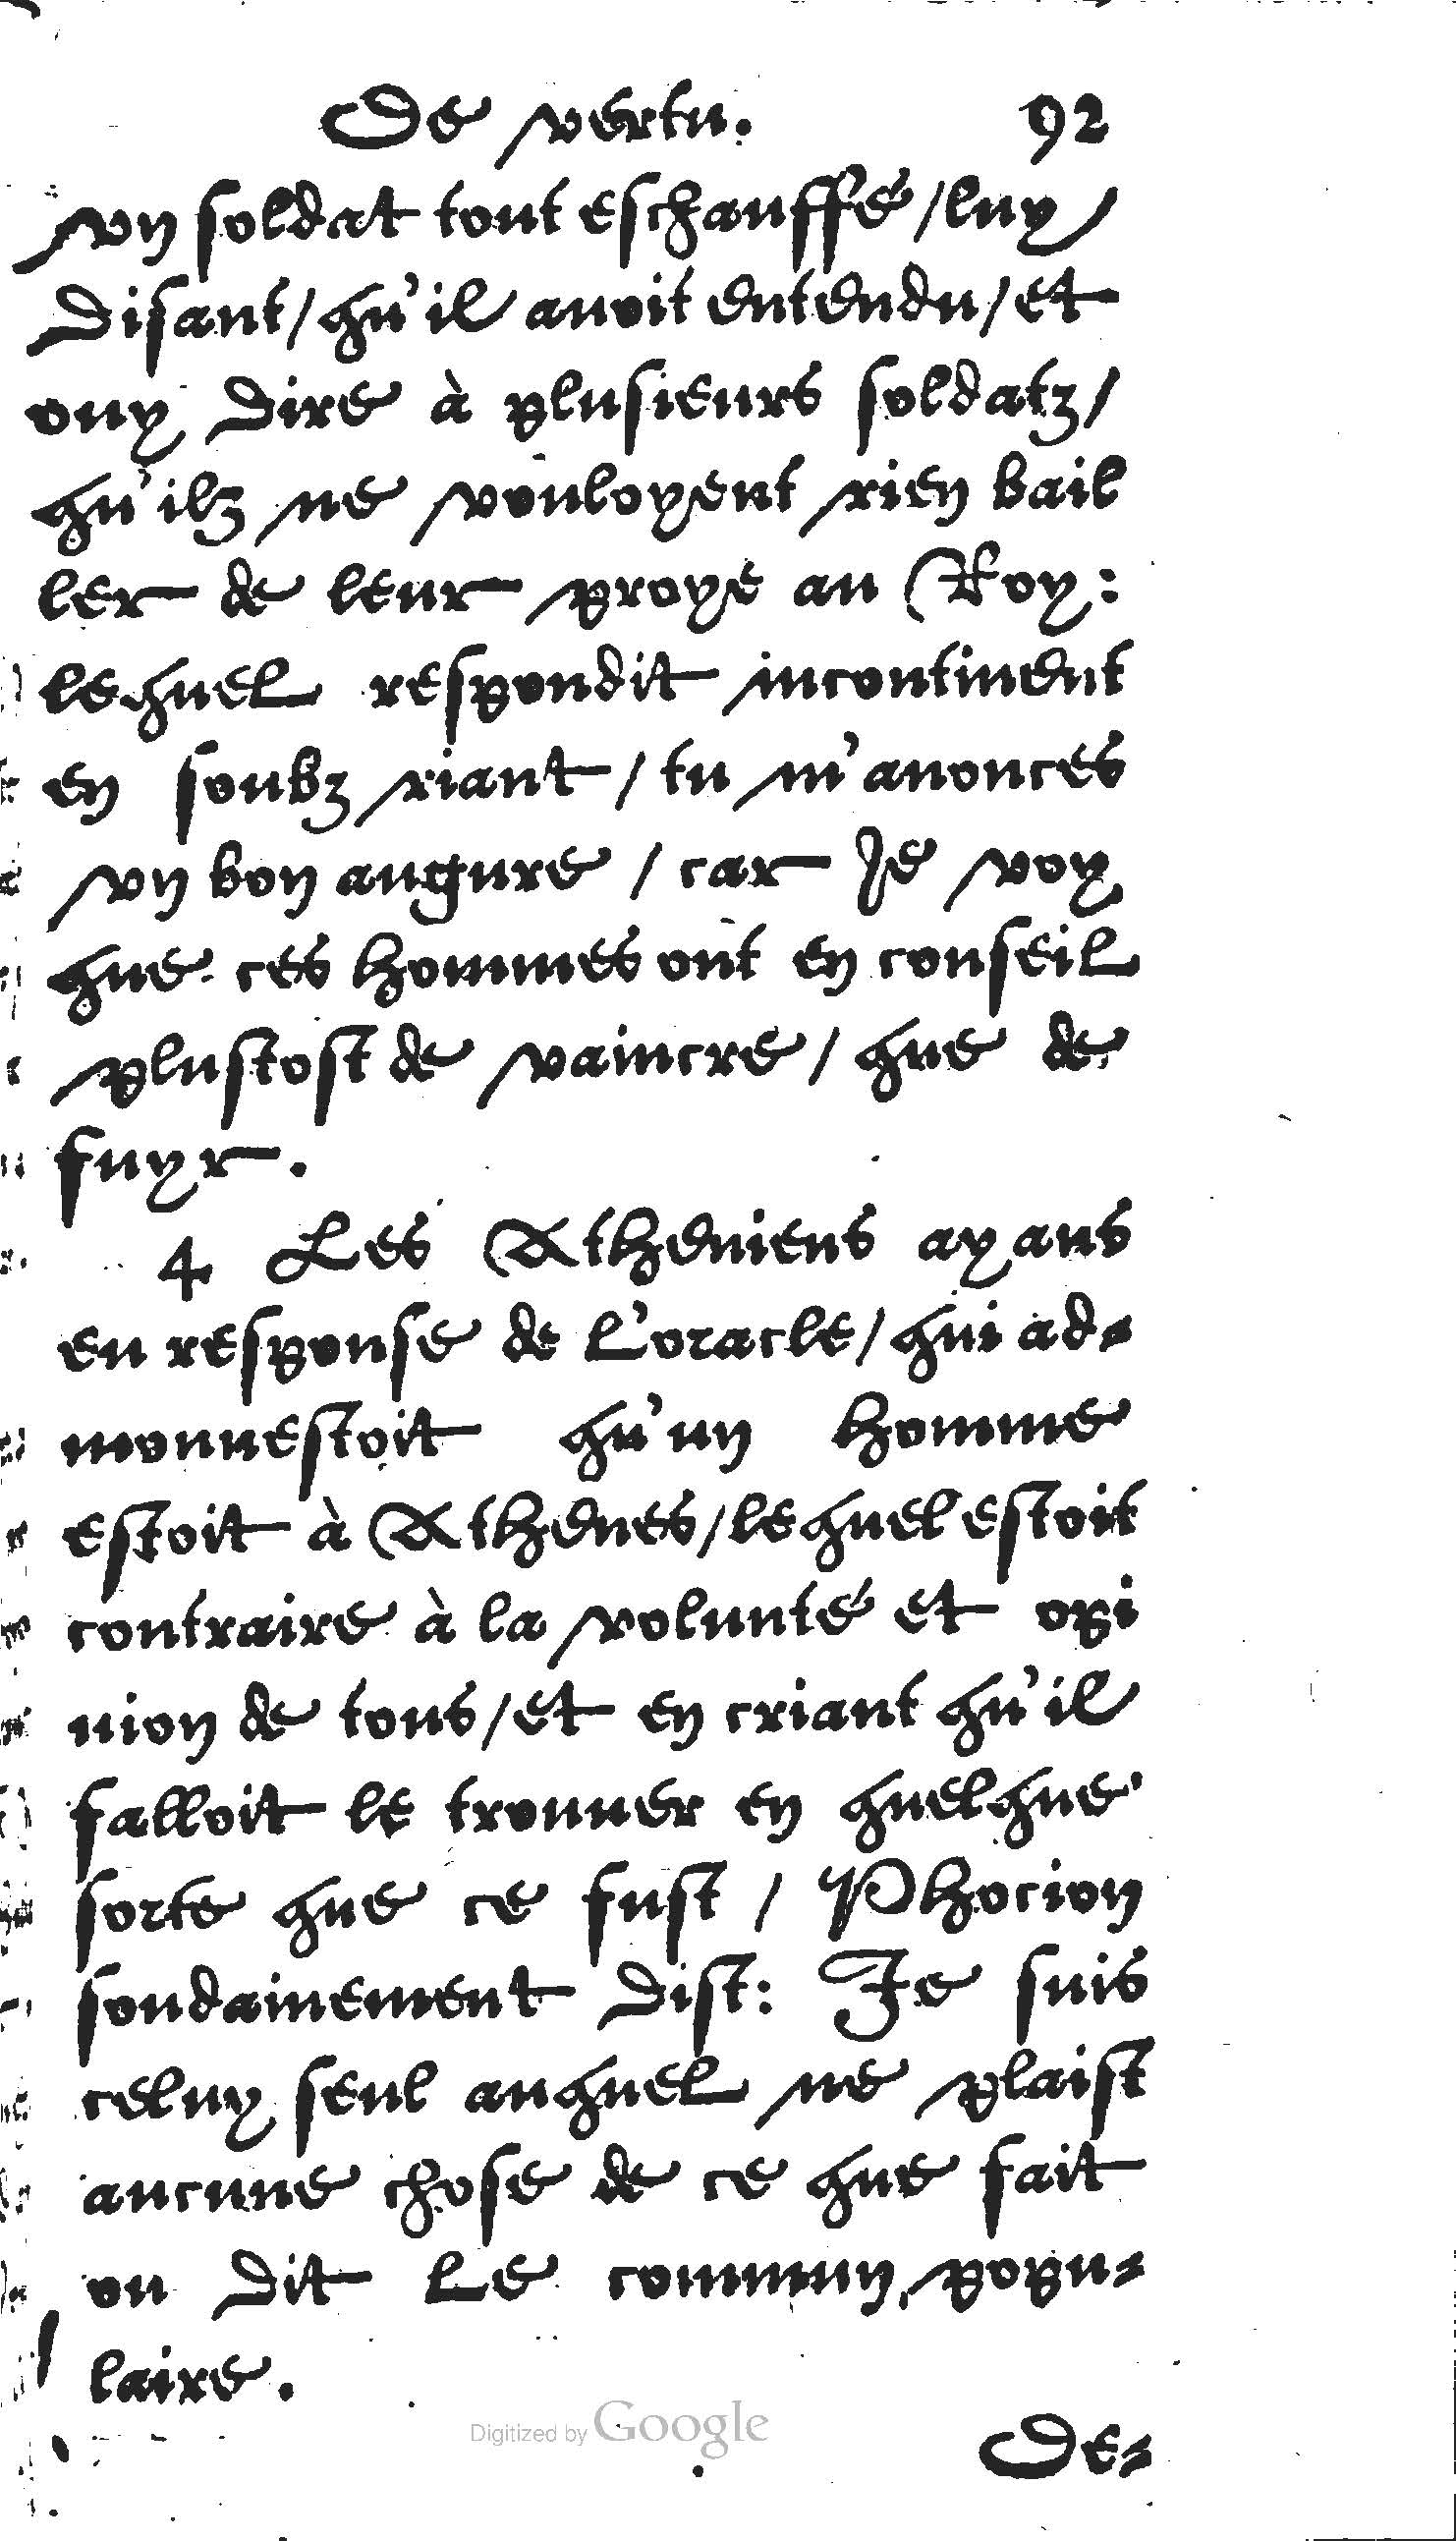 De vertu. 92
vn soldat tout eschauffé/luy
disant/qu'il auoit entendu/et
ouy dire à plusieurs soldatz/
qu'ilz ne vouloyent rien bail
ler de leur proye au Roy:
lequel respondit incontinent
en soubz riant/tu m'anonces
vn bon augure/car Je voy
que ces hommes ont en conseil
plustost de vaincre/que de
fuyr.
4 Les Atheniens ayans
eu response de l'oracle/qui ad-
monnestoit qu'un homme
estoit à Athenes/lequel estoit
contraire à la volunté et opi
nion de tous/et en criant qu'il
falloit le trouuer en quelque
sorte que ce fust/Phocion
soudainement dist: Je suis
celuy seul auquel ne plaist
aucune chose de ce que fait
ou dit le commun popu-
laire.
Digitized by Google
De-